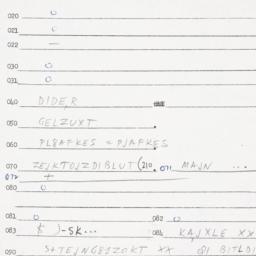 020 0
021 0
022 —
030 0
031 0
040 DIDE,R
050 GELZUXT
060 PLBAFKES = PJAFKES
070 ZEJKTOJZDIBLUT (210. 071 MAJN ...
072 +
080 0
081 0 082 0
083 )-SK... 084 KAJXLE XX
090 S+TEJNGBSZOKT XX